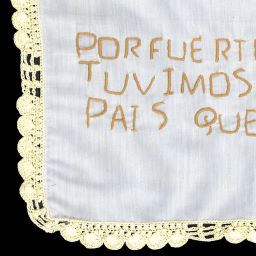 POR FUERTE
TUVIMOS
PAIS QUE